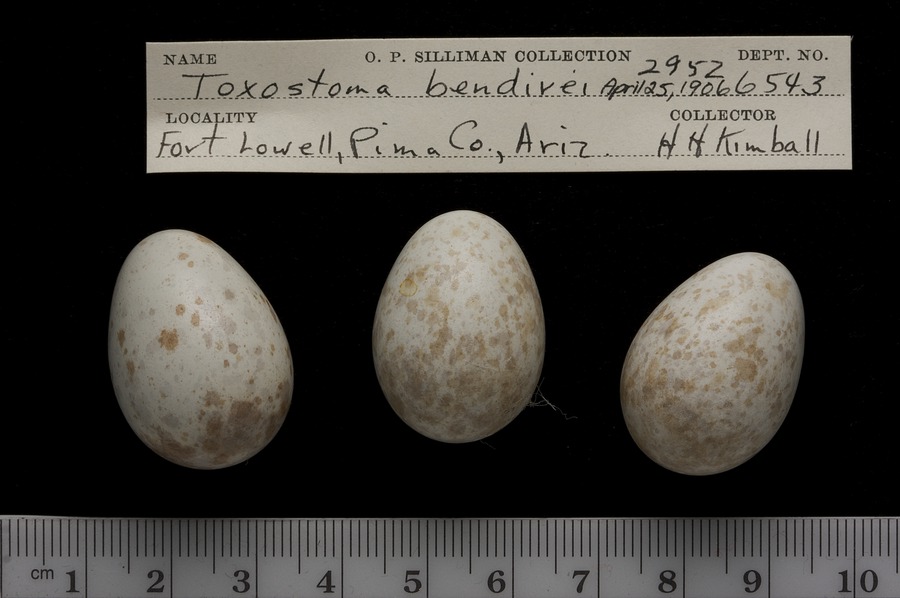 NAME O. P. SILLIMAN COLLECTION DEPT. NO.
2952
Toxostoma bendirei April 25, 1906 6543
LOCALITY COLLECTOR
Fort Lowell, Pima Co., Ariz. H H Kimball
cm 1 2 3 4 5 6 7 8 9 10